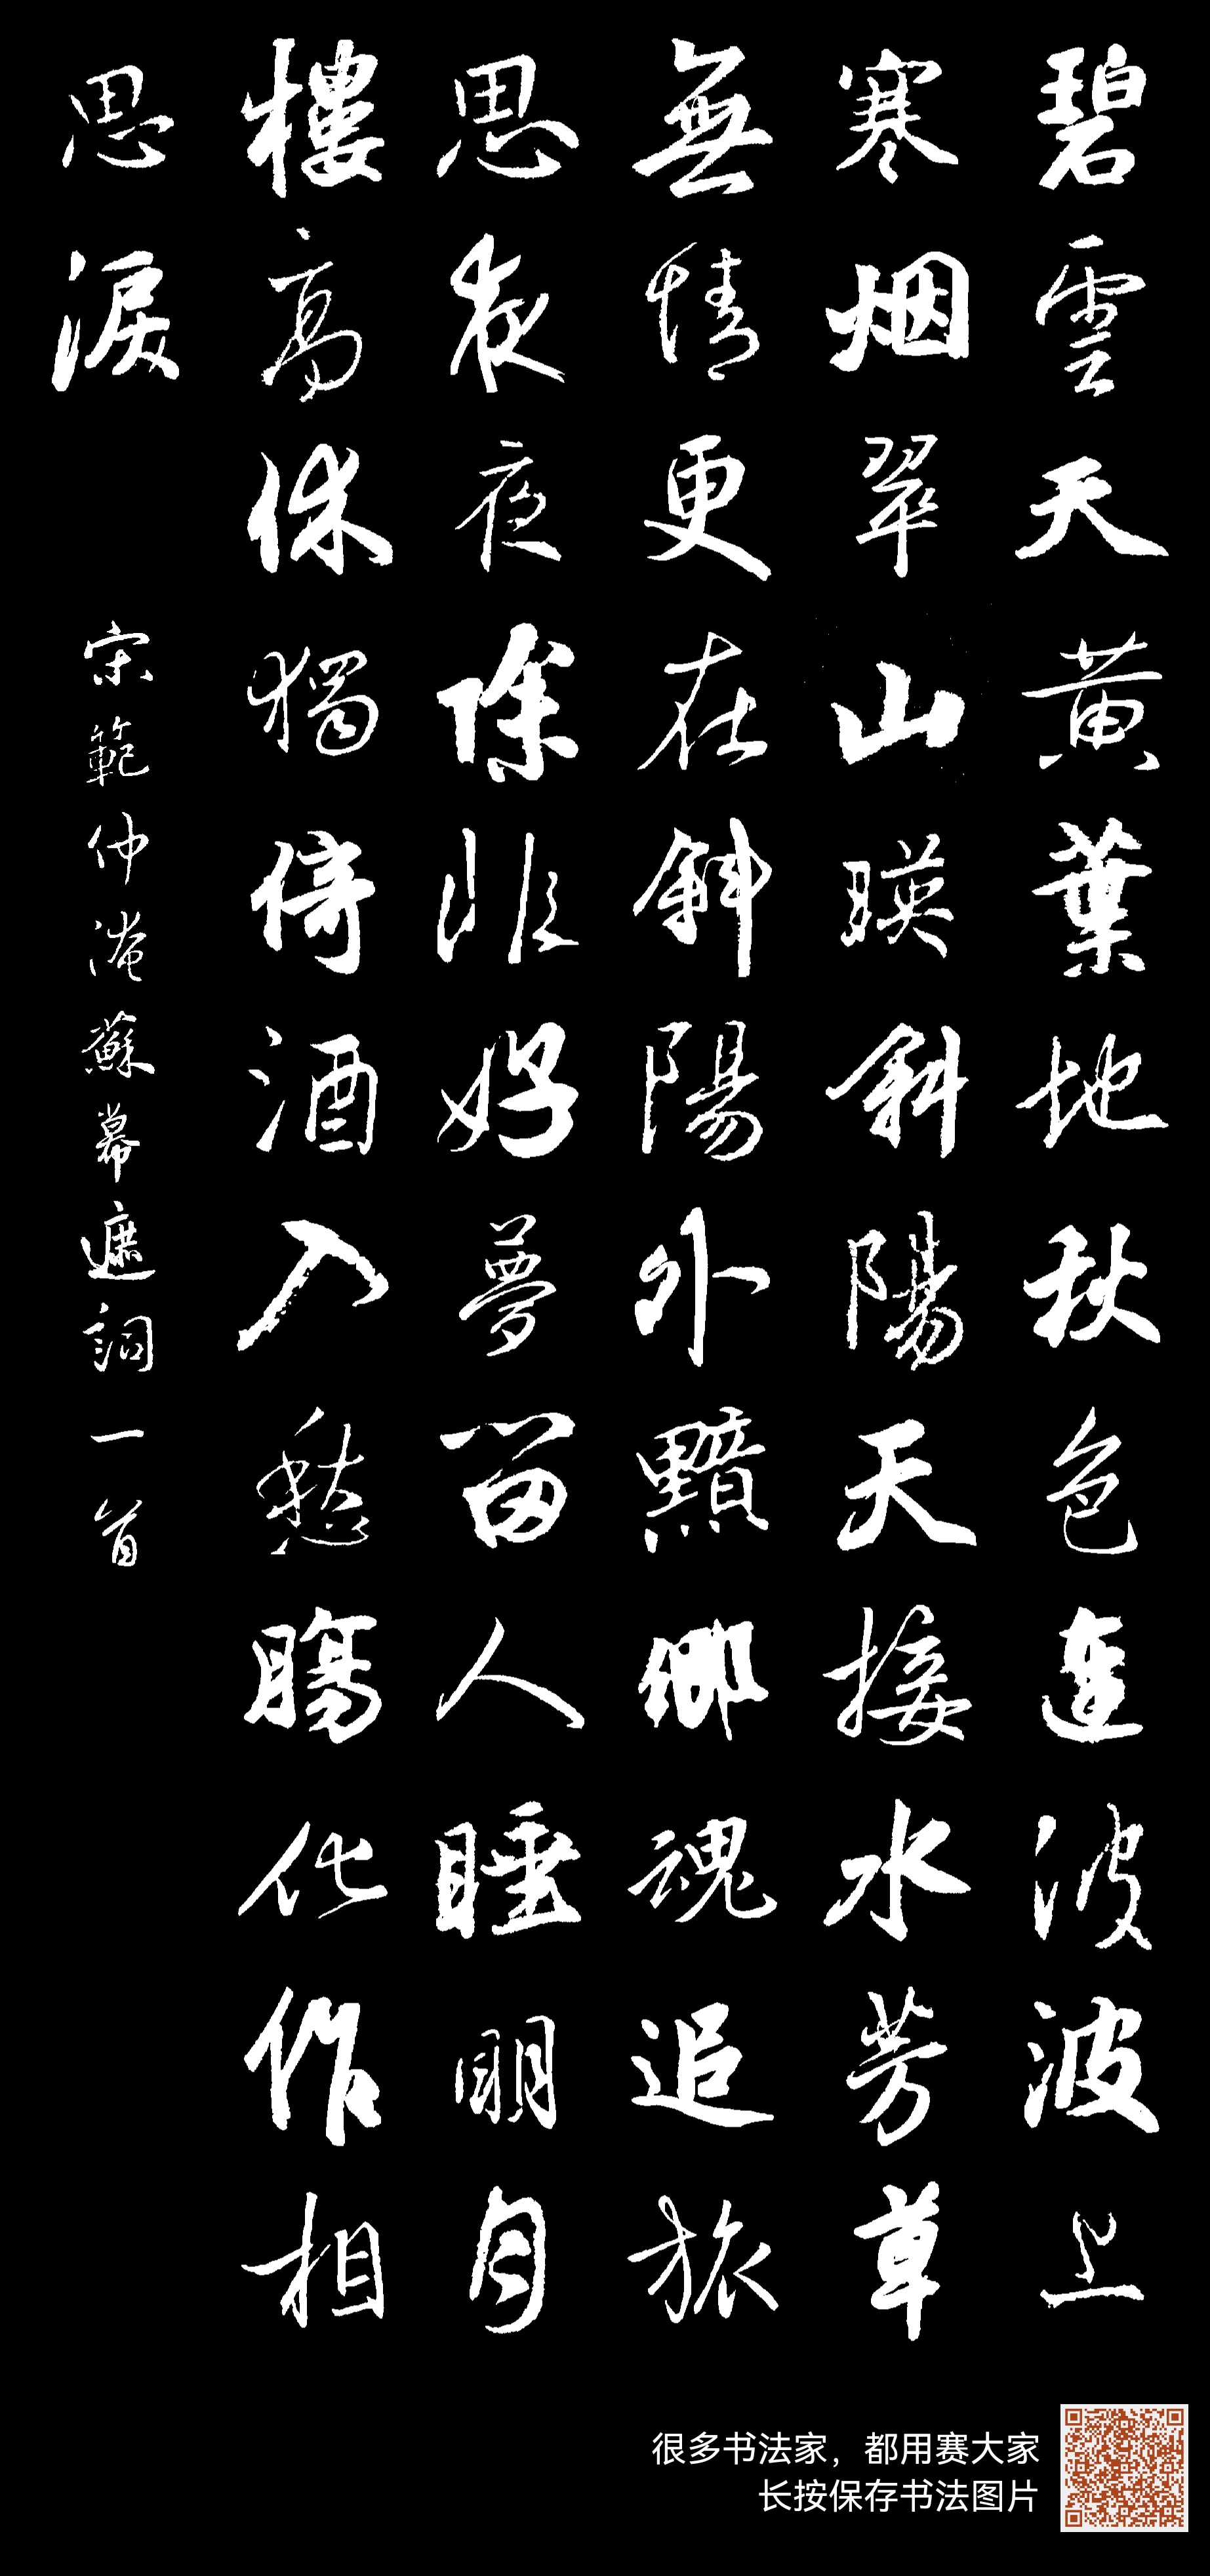 碧雲天黄葉地秋色連波波上
寒烟翠山暎斜陽天接水芳草
無情更在斜陽外黯鄉魂追旅
思夜夜除非好夢留人睡明月
樓高休獨倚酒入愁腸化作相
思淚
宋範仲淹蘇幕遮詞一首
很多书法家，都用赛大家
长按保存书法图片